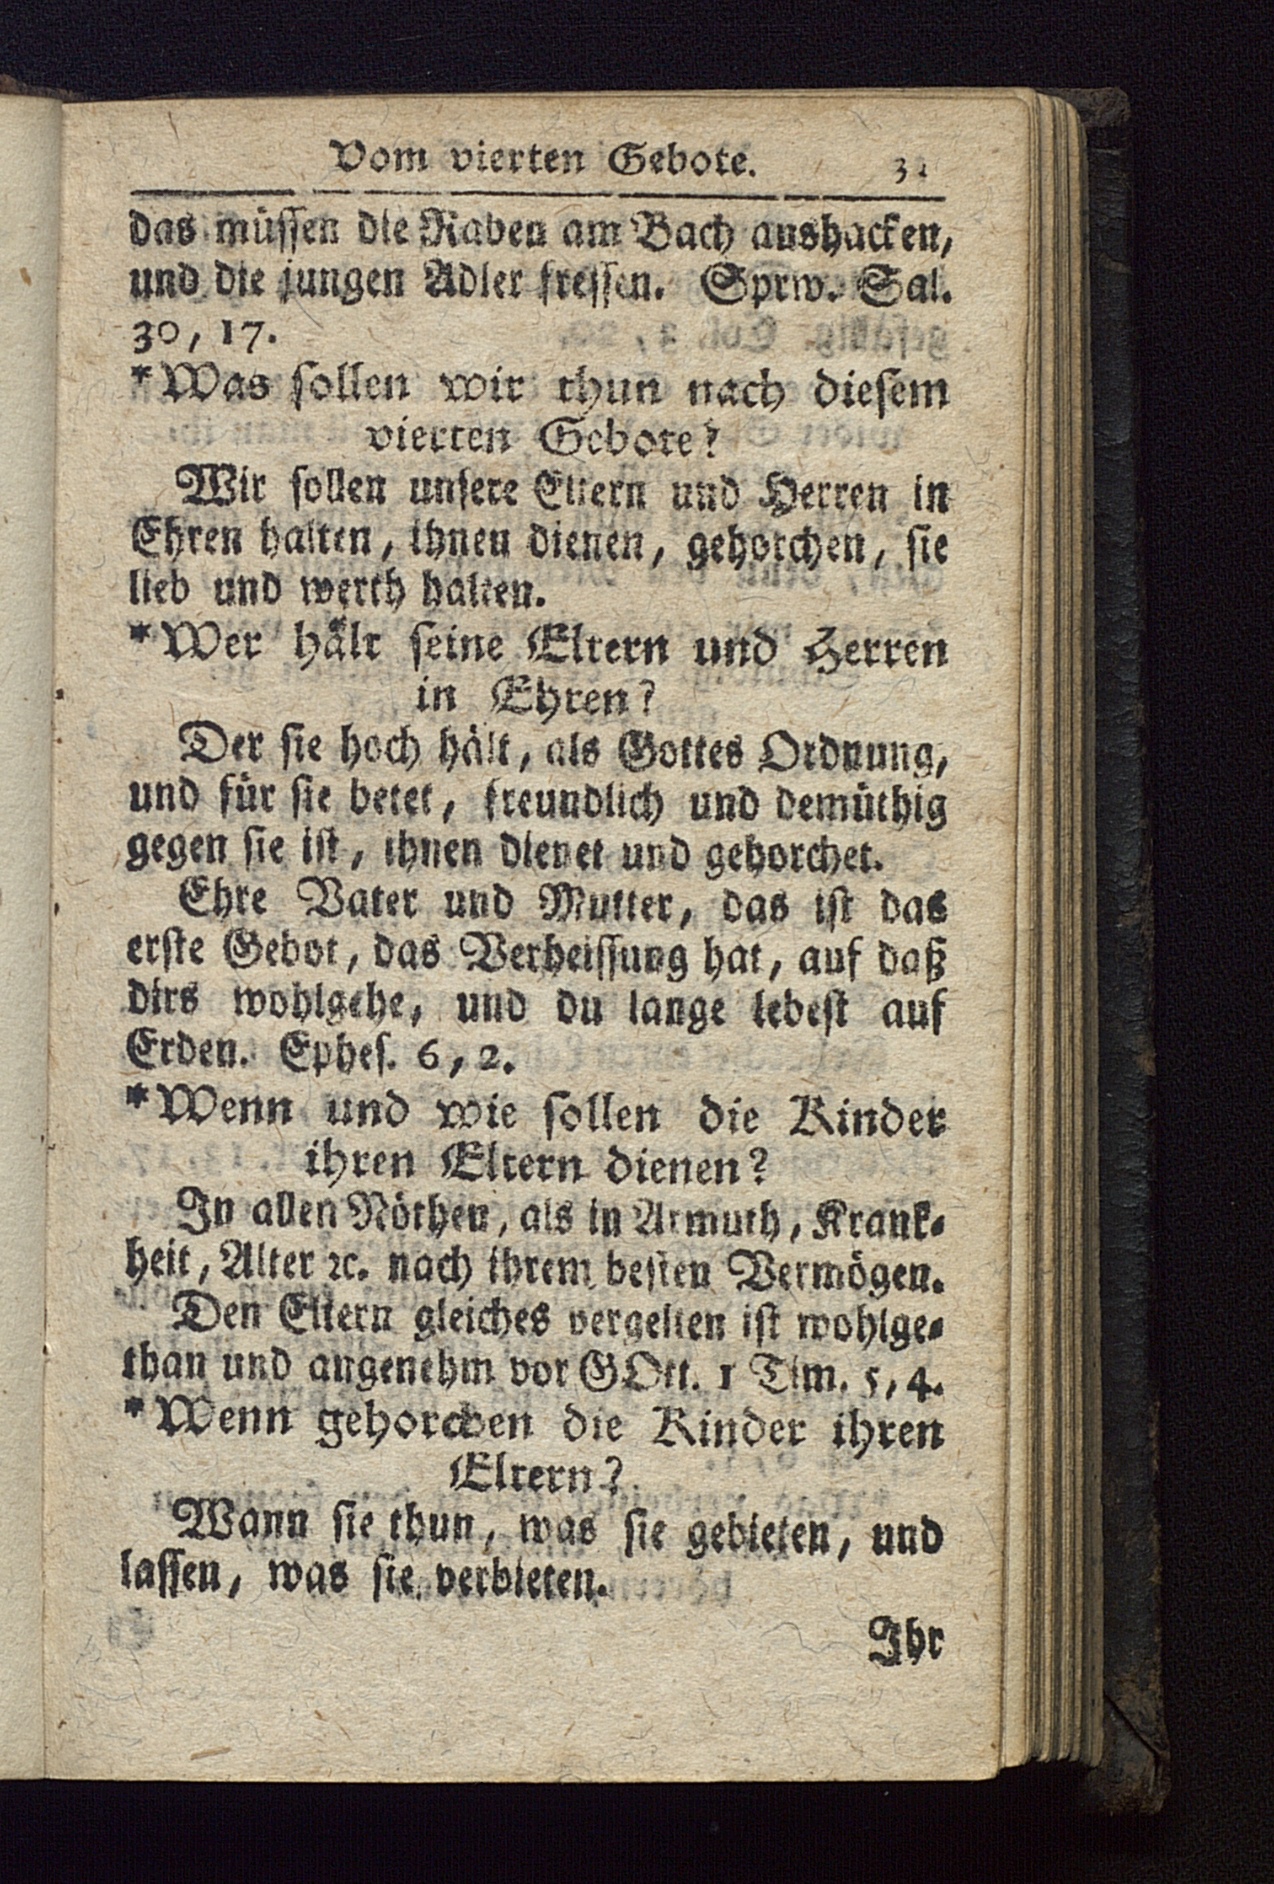 Vom vierten Gebote. 31
das müssen die Raben am Bach aushacken,
und die jungen Adler fressen. Sprw. Sal.
30, 17.
*Was sollen wir thun nach diesem
vierten Gebote?
Wir sollen unsere Eltern und Herren in
Ehren halten, ihnen dienen, gehorchen, sie
lieb und werth halten.
*Wer hält seine Eltern und Herren
in Ehren?
Der sie hoch hält, als Gottes Ordnung,
und für sie betet, freundlich und demüthig
gegen sie ist, ihnen dienet und gehorchet.
Ehre Vater und Mutter, das ist das
erste Gebot, das Verheissung hat, auf daß
dirs wohlgehe, und du lange lebest auf
Erden. Ephes. 6, 2.
*Wenn und wie sollen die Kinder
ihren Eltern dienen?
In allen Nöthen, als in Armuth, Krank-
heit, Alter ꝛc. nach ihrem besten Vermögen.
Den Eltern gleiches vergelten ist wohlge-
than und angenehm vor GOtt. 1 Tim. 5, 4.
*Wenn gehorchen die Kinder ihren
Eltern?
Wann sie thun, was sie gebieten, und
lassen, was sie verbieten.
Ihr